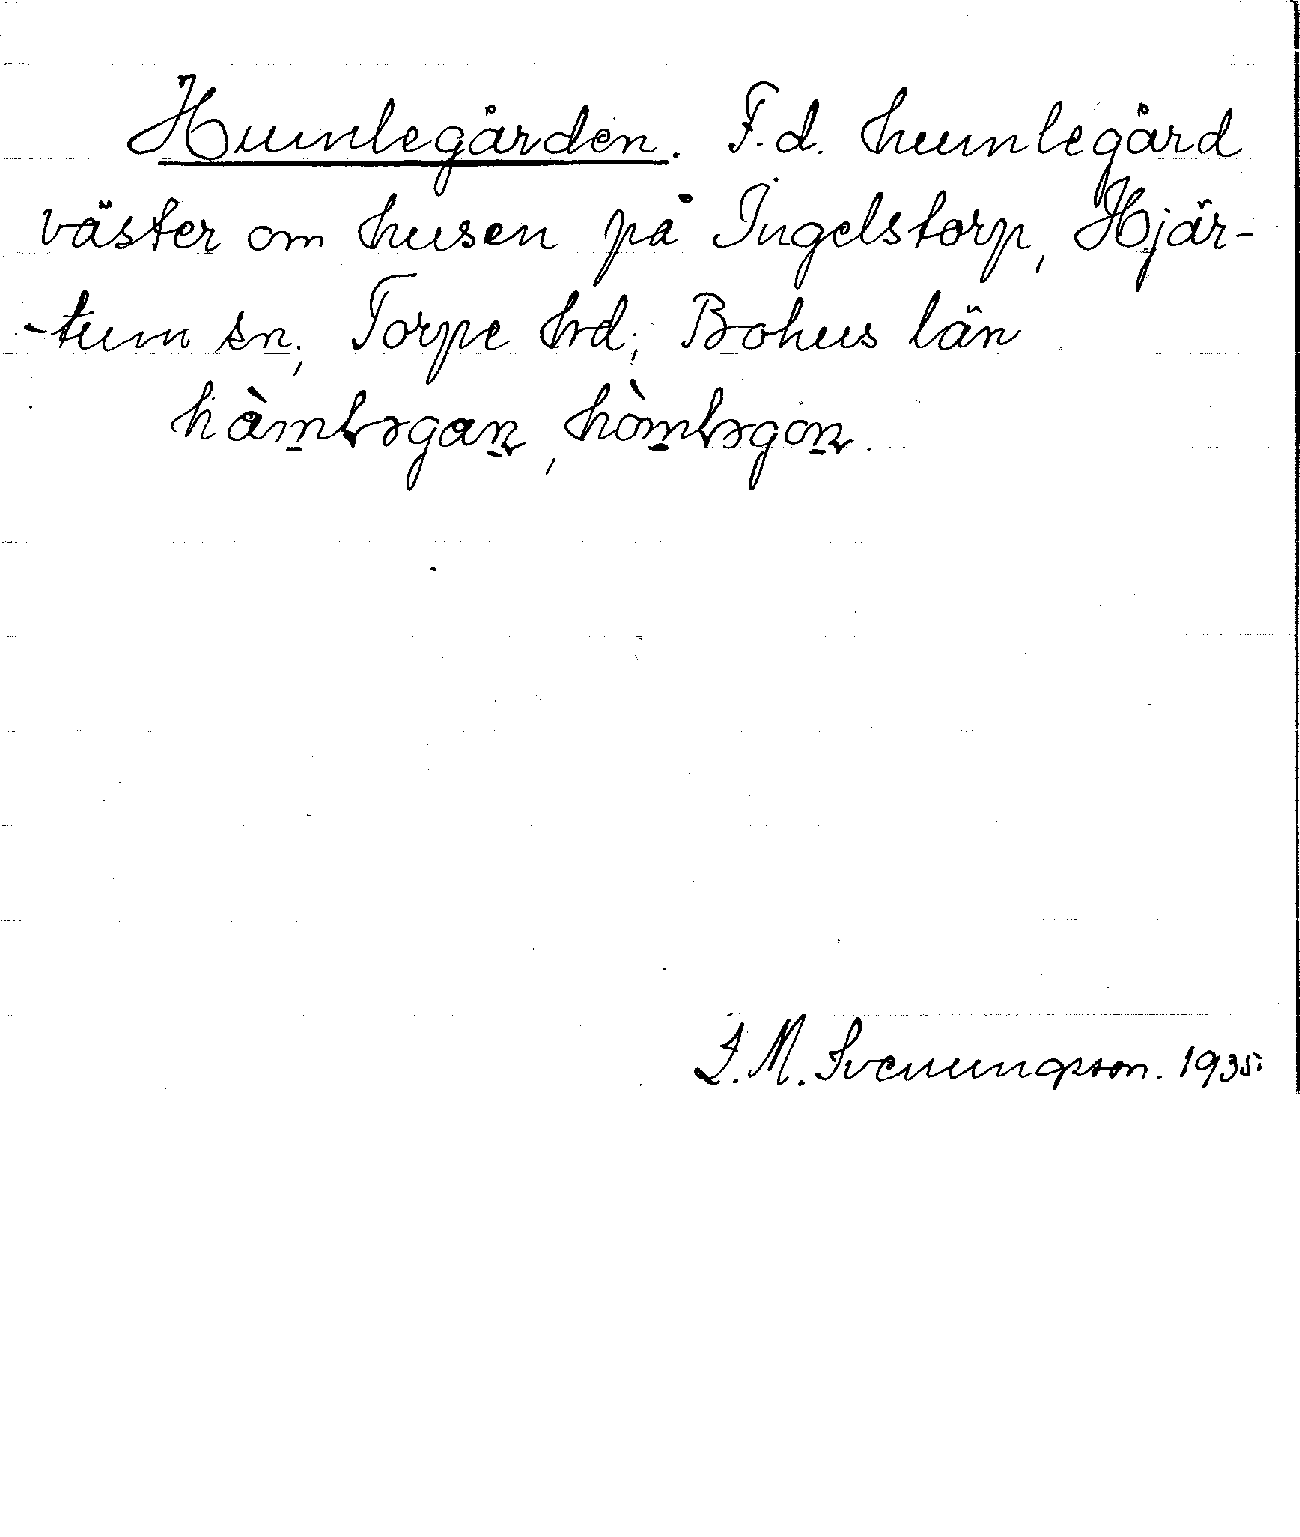 Humlegården. F.d. humlegård
väster om husen på Ingelstorp, Hjär-
-tum sn, Torpe hrd; Bohus län
hàmbəgan, hòmbəgon.
I. M. Svenungsson. 1935.